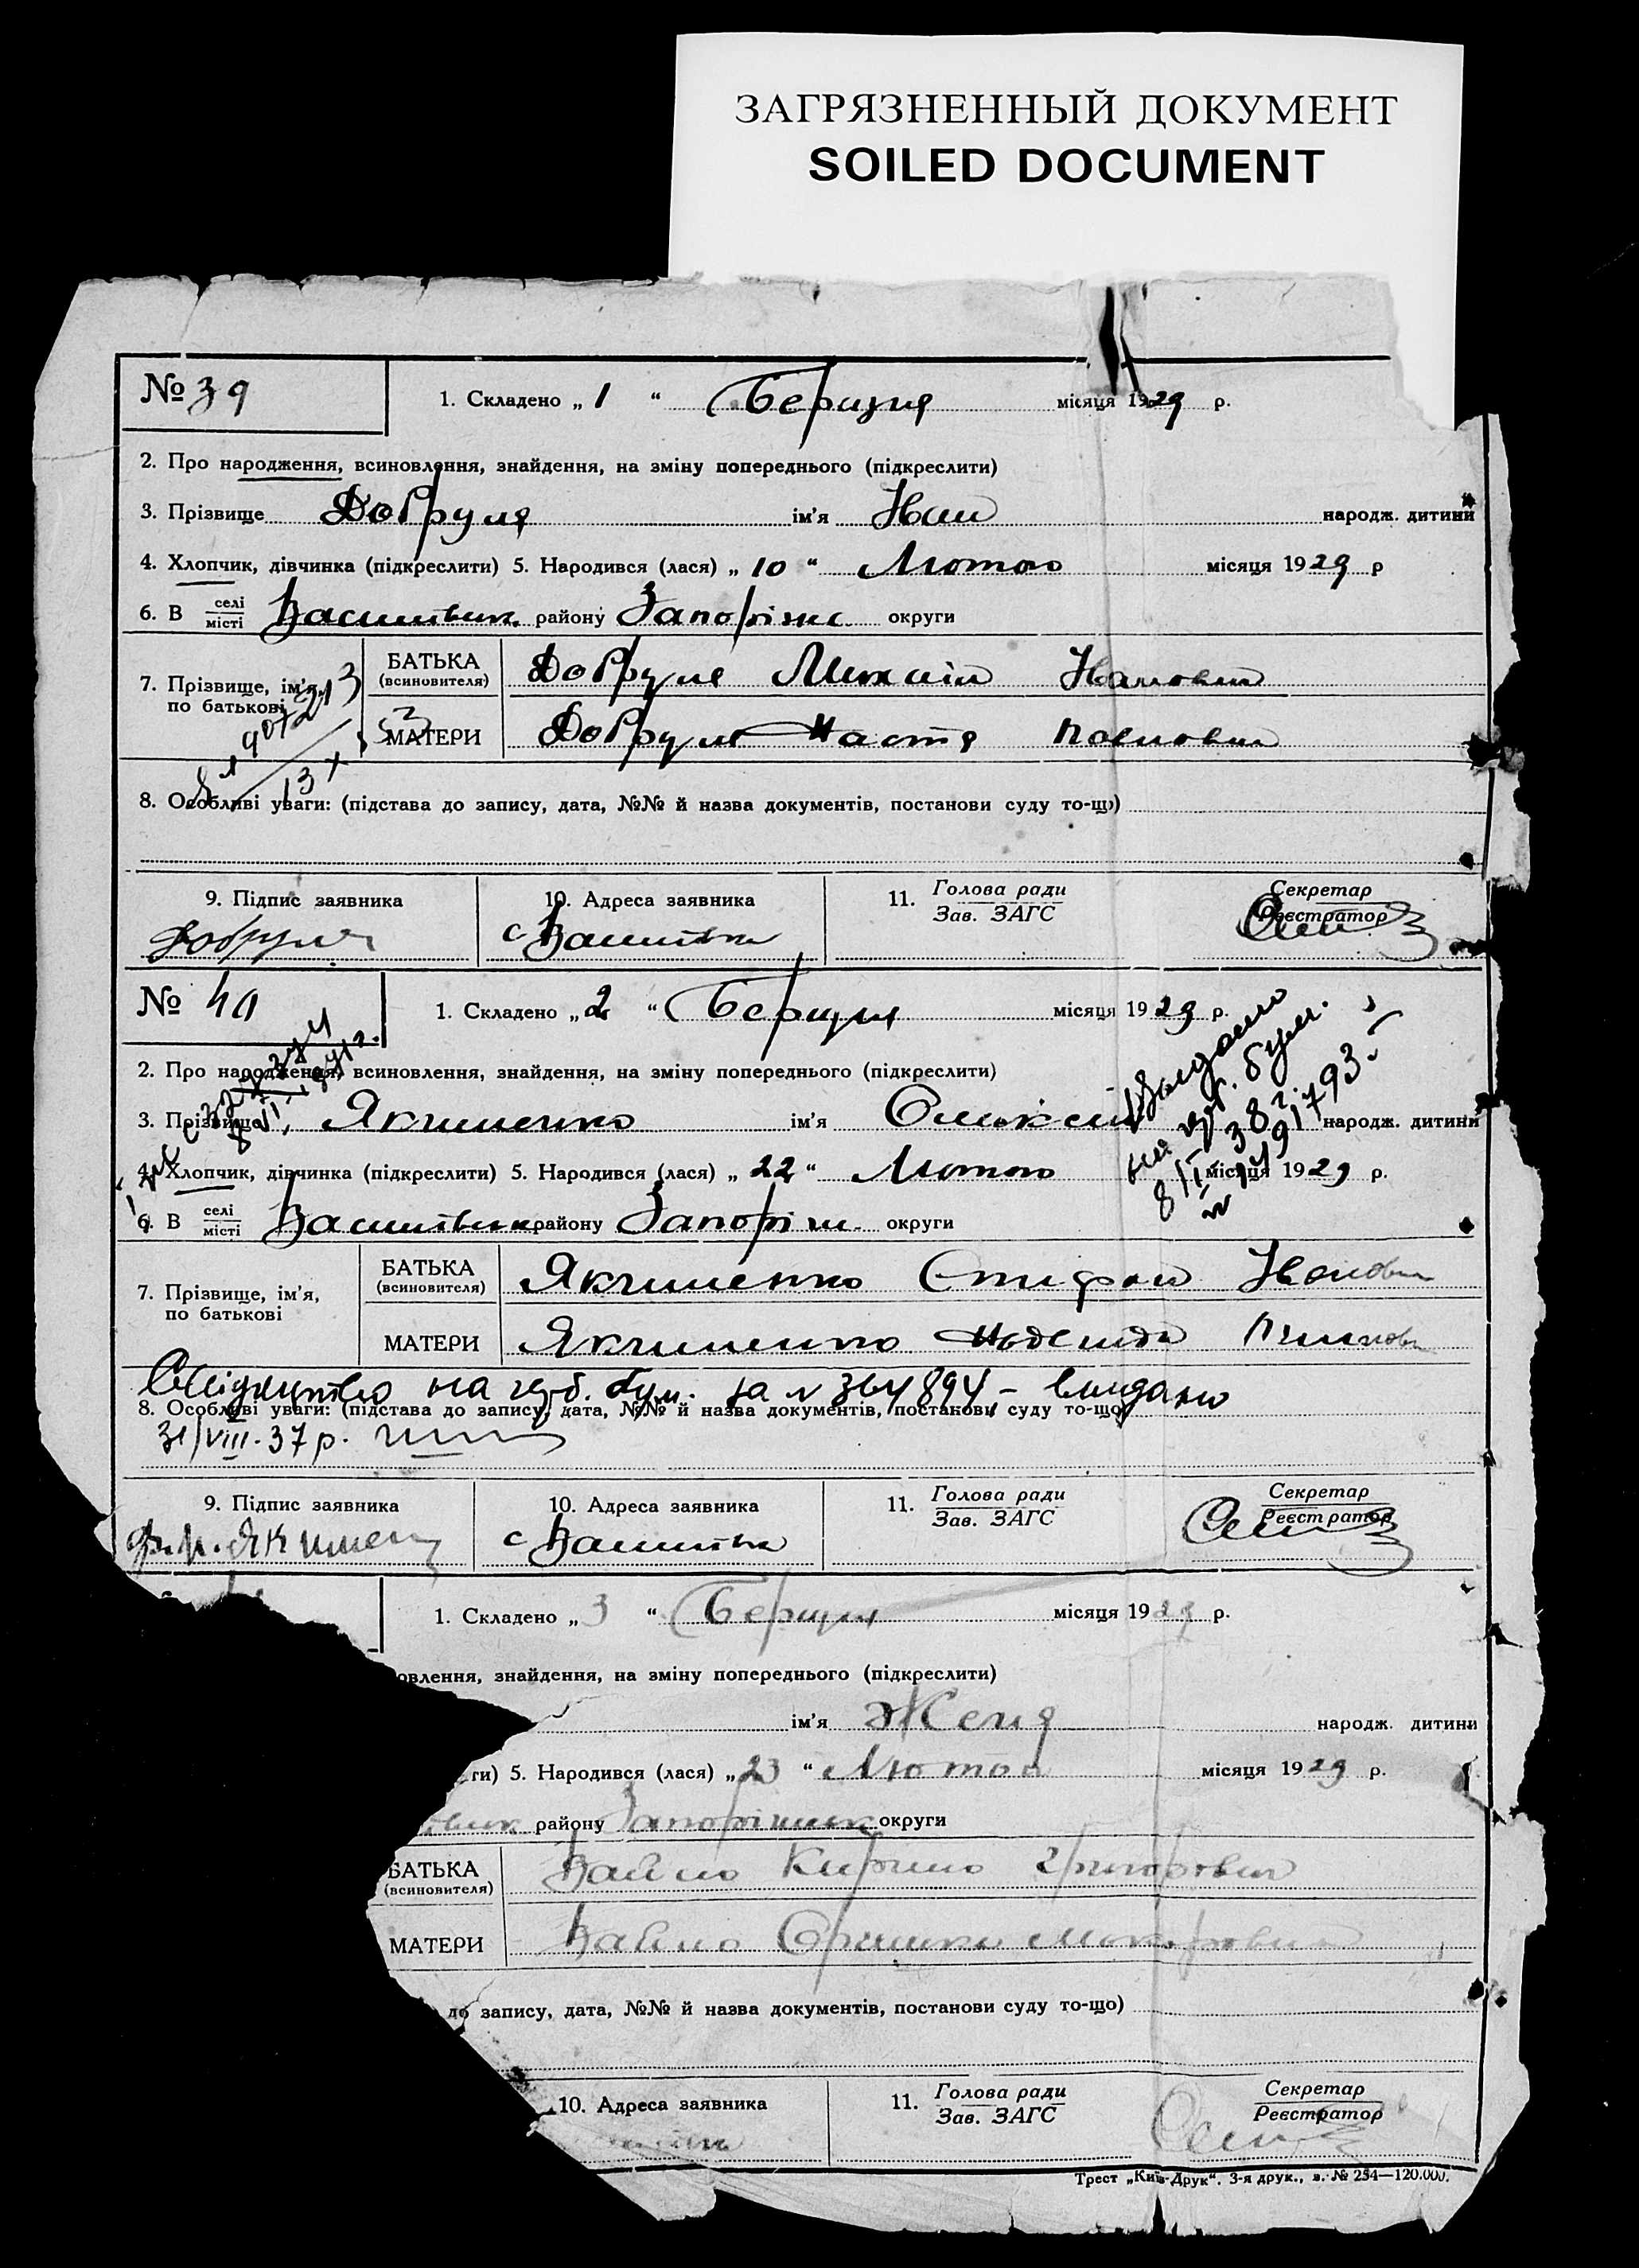 ЗАГРЯЗНЕННЫЙ ДОКУМЕНТ
SOILED DOCUMENT
№ 39
1. Складено „ 1 “ Березня місяця 1929 р.
2. Про народження, всиновлення, знайдення, на зміну попереднього (підкреслити)
3. Прізвище Добруля ім'я Іван народж. дитини
4. Хлопчик, дівчинка (підкреслити) 5. Народився (лася) „ 10 “ Лютого місяця 1929 р
6. В селі місті Василівськ. району Запоріжс. округи
7. Прізвище, ім'я, по батькові
БАТЬКА (всиновителя) Добруля Михаіл Іванович
МАТЕРИ Добруля Настя Павловна
8. Особливі уваги: (підстава до запису, дата, №№ й назва документів, постанови суду то-що)
9. Підпис заявника
10. Адреса заявника
11. Голова ради
Зав. ЗАГС
Секретар
Реєстратор
Добруля
с Василівка
№ 40
1. Складено „ 2 “ Березня місяця 1929 р.
2. Про народження, всиновлення, знайдення, на зміну попереднього (підкреслити)
3. Прізвище Якименко ім'я Олексій народж. дитини
4. Хлопчик, дівчинка (підкреслити) 5. Народився (лася) „ 22 “ Лютого місяця 1929 р.
6. В селі місті Василівськ району Запоріж. округи
7. Прізвище, ім'я, по батькові
БАТЬКА (всиновителя) Якименко Стифан Іванович
МАТЕРИ Якименко Надежда
Свідоцтво на герб. бум. за № 364894 – видано
8. Особливі уваги: (підстава до запису, дата, №№ й назва документів, постанови суду то-що)
31/VIII-37 р.
Выдано
на герб. бум.
8/IV 38 г.
№ 1491793
9. Підпис заявника
10. Адреса заявника
11. Голова ради
Зав. ЗАГС
Секретар
Реєстратор
с Василівка
1. Складено „ 3 “ Березня місяця 1929 р.
овлення, знайдення, на зміну попереднього (підкреслити)
ім'я Женя народж. дитини
ти) 5. Народився (лася) „ 23 “ Лютого місяця 1929 р.
івськ району Запоріжськ округи
БАТЬКА (всиновителя) Вайло Кирило Григорович
МАТЕРИ Вайло Оришка Макаровна
до запису, дата, №№ й назва документів, постанови суду то-що)
10. Адреса заявника
11. Голова ради
Зав. ЗАГС
Секретар
Реєстратор
Трест „Київ-Друк“. 3-я друк., з. № 254—120.000.